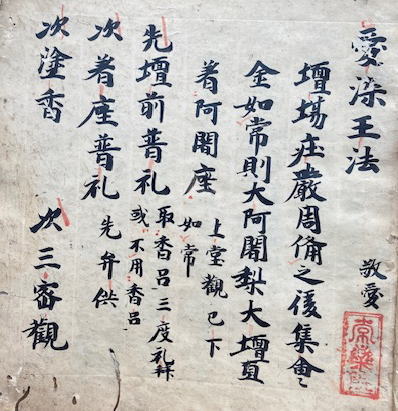 愛染王法 敬愛
常樂院
壇場庄嚴周俻之後集會
金如常則大阿闍梨大壇直
著阿闍座 上堂觀已下
如常
先壇前普礼 取香呂三度礼拜
或不用香呂
次著座普礼 先弁供
次塗香 次三密觀